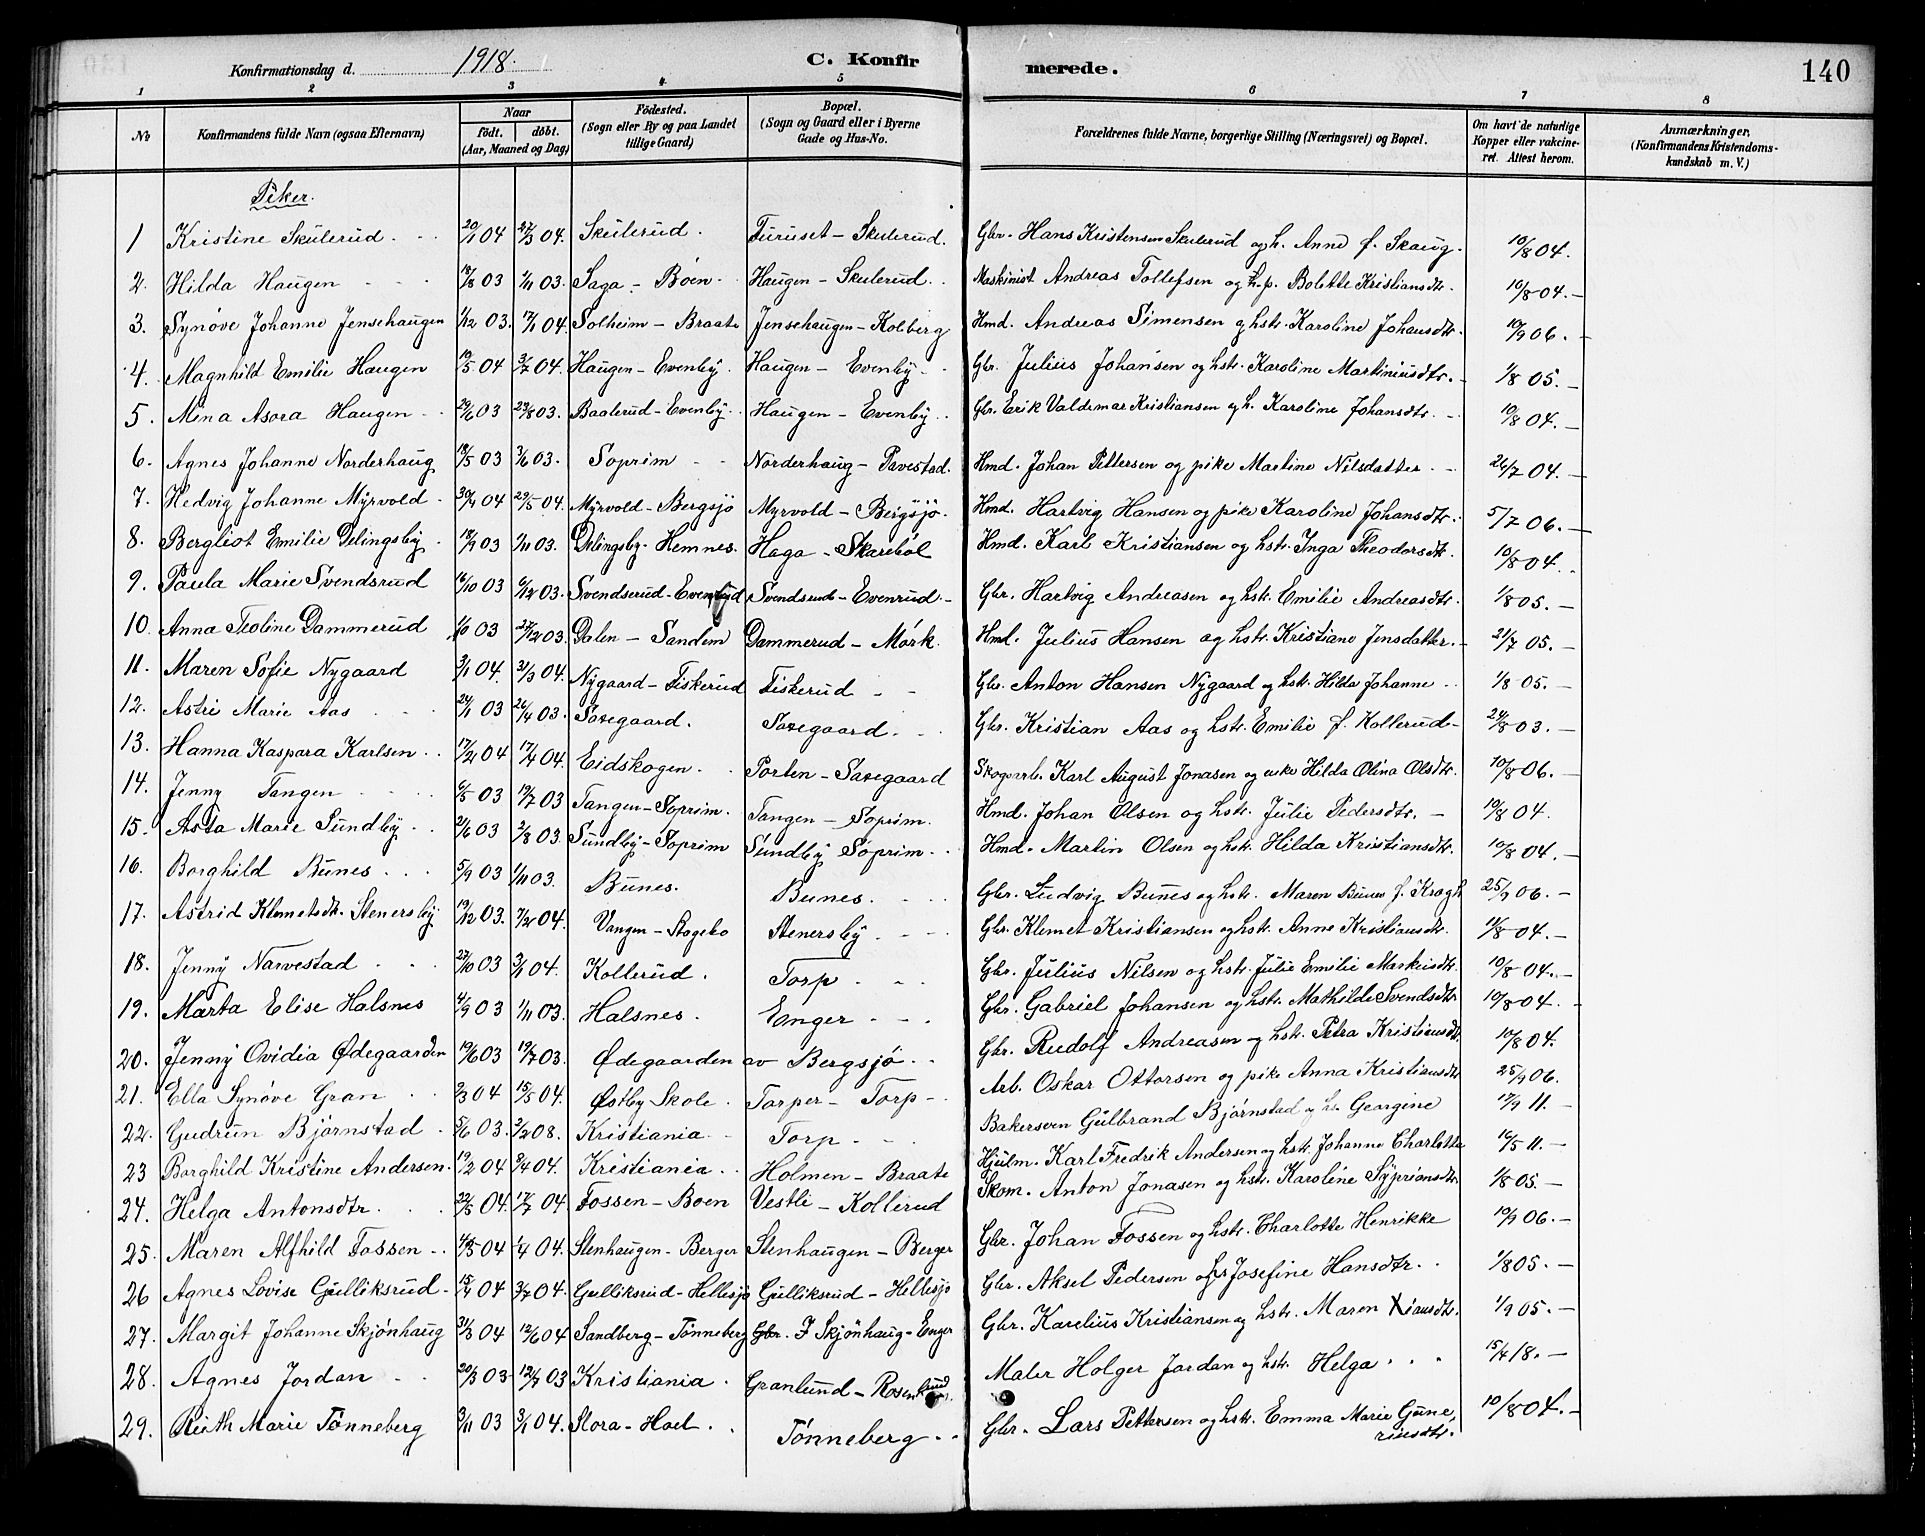 Konfirmationsdag d. 1918. C. Konfirmerede. 140
1 2 3 4 5 6 7 8
№ Konfirmandens fulde Navn (ogsaa Efternavn) Naar født. døbt. (Aar, Maaned og Dag) Fødested. (Sogn eller By og paa Landet tillige Gaard) Bopæl. (Sogn og Gaard eller i Byerne Gade og Hus-No. Forældrenes fulde Navne, borgerlige Stilling (Næringsvei) og Bopæl. Om havt de naturlige Kopper eller vakcineret. Attest herom. Anmærkninger. (Konfirmandens Kristendomskundskab m. V.)
Piker.
1 Kristine Skulerud 20/1 04 27/3 04. Skulerud. Furuset - Skulerud. Gbr. Hans Kristensen Skulerud og h. Anne f. Skaug. 10/8 04.
2. Hilda Haugen 18/8 03 1/11 03. Saga - Böen Haugen - Skulerud. Maskinist Andreas Tollefsen og h.p. Bolette Kristiansdtr. 10/8 04.-
3. Synöve Johanne Jensehaugen 1/12 03. 17/1 04. Solheim - Braate Jensehaugen - Kolberg Hmd. Andreas Simensen og hstr. Karoline Johansdtr. 10/9 06.-
4. Magnhild Emilie Haugen 19/5 04 3/7 04. Haugen - Evenby. Haugen - Evenby. Gbr. Julius Johansen og hstr. Karoline Martiniusdtr. 1/8 05.-
5. Mina Asora Haugen 29/6 03 23/8 03. Baalerud - Evenby. Haugen - Evenby. Gbr. Erik Valdemar Kristiansen og h. Karoline Johansdtr. 10/8 04.-
6. Agnes Johanne Norderhaug 18/5 03 3/6 03. Soprim Norderhaug - Tavestad. Hmd. Johan Pettersen og pike Martine Nilsdatter. 26/7 04.-
7. Hedvig Johanne Myrvold 30/4 04 29/5 04. Myrvold - Bergsjö Myrvold - Bergsjö. Hmd. Hartvig Hansen og pike Karoline Johansdtr. 5/7 06.-
8. Bergliot Emilie Delingsby 18/9 03 1/11 03. Delingsby - Hemnes. Haga - Skareböl Hmd. Karl Kristiansen og hstr. Inga Theodorsdtr. 10/8 04.
9. Paula Marie Svendsrud 16/10 03 6/12 03. Svendserud - Svendsrud - Evenrud. Gbr. Hartvig Andreasen og hstr. Emilie Andreasdtr. 1/8 05.-
10. Anna Teoline Dammerud 1/10 03 27/12 03. Dalen - Sandem Dammerud - Mörk. Hmd. Julius Hansen og hstr. Kristiane Jensdatter. 21/7 05.-
11. Maren Sofie Nygaard 3/1 04. 31/3 04. Nygaard - Fiskerud Fiskerud Gbr. Anton Hansen Nygaard og hstr. Hilda Johanne 1/8 05.-
12. Astri Marie Aas 24/1 03 26/4 03. Saxegaard. Saxegaard. Gbr. Kristian Aas og hstr. Emilie f. Kollerud 24/8 03.-
13. Hanna Kaspara Karlsen 17/2 04 17/4 04. Eidskogen. Porten - Saxegaard Skogsarb. Karl August Jonasen og enke Hilda Olina Olsdtr. 10/8 06.-
14. Jenny Tangen 6/5 03 19/7 03 Tangen - Soprim. Tangen - Soprim. Hmd. Johan Olsen og hstr. Julie Pedersdtr. 10/8 04.
15. Asta Marie Sundby 2/6 03 2/8 03. Sundby - Soprim Sundby Soprim. Hmd. Martin Olsen og hstr. Hilda Kristiansdtr. 10/8 04.-
16. Borghild Bunes 5/9 03 1/11 03. Bunes. Bunes. Gbr. Ludvig Bunes og hstr. Maren Bunes f. Krogh 25/9 06.-
17. Astrid Klemetsdtr. Stenersby 19/12 03. 7/2 04. Vangen - Stenersby Gbr. Klemet Kristiansen og hstr. Anne Kristiansdtr. 11/8 04.-
18. Jenny Narvestad 27/10 03 3/1 04. Kollerud. Torp Gbr. Julius Nilsen og hstr. Julie Emilie Markusdtr. 10/8 04.-
19. Marta Elise Halsnes 4/9 03 1/11 03. Halsnes. Enger Gbr. Gabriel Johansen og hstr. Mathilde Svendsdtr 10/8 04.
20. Jenny Ovidia Ødegaarden 19/6 03 19/7 03. Ødegaarden av Bergsjö Gbr. Rudolf Andreasen og hstr. Petra Kristiansdtr. 10/8 04.
21. Ella Synöve Gran 2/3 04 15/5 04. Østby Skole. Torper - Torp Arb. Oskar Ottorsen og pike Anna Kristiansdtr 25/9 06.
22. Gudrun Björnstad 5/6 03. 2/2 08. Kristiania Torp Bakersven Gulbrand Björnstad og hs. Georgine 17/9 11.-
23 Borghild Kristine Andersen. 19/2 04 3/4 04. Kristiania Holmen - Braate Hjulm. Karl Fredrik Andersen og hstr. Johanne Charlotte 16/5 11.-
24. Helga Antonsdtr 22/5 04. 17/7 04 Fossen - Boen Vestli - Kollerud Skom. Anton Jonasen og hstr. Karoline Syprionsdtr 1/8 05.-
25. Maren Alfhild Fossen 04 1/4 04. Stenhaugen - Berger Stenhaugen - Berger Gbr. Johan Fossen og hstr. Charlotte Henrikke 10/9 06.-
26 Agnes Lovise Gulliksrud 15/4 04 3/7 04. Gulliksrud - Hellesjö Gulliksrud - Hellesjö Gbr. Aksel Pedersen og hs Josefine Hansdtr. 1/8 05.-
27. Margit Johanne Skjönhaug 31/3 04 12/6 04 Sandberg - Tönneberg Gbr. I Skjönhaug - Enger Gbr. Karelius Kristiansen og hstr. Maren Xiansdtr. 1/9 05.-
28. Agnes Jordan 20/3 03 12/7 03 Kristiania. Granlund - Maler Holger Jordan og hstr. Helga 15/4 18.-
29. Ruth Marie Tönneberg 3/11 03 3/1 04. Stora - Hoel. Tönneberg Gbr. Lars Pettersen og hstr. Emma Marie Guneriusdtr. 10/8 04.-